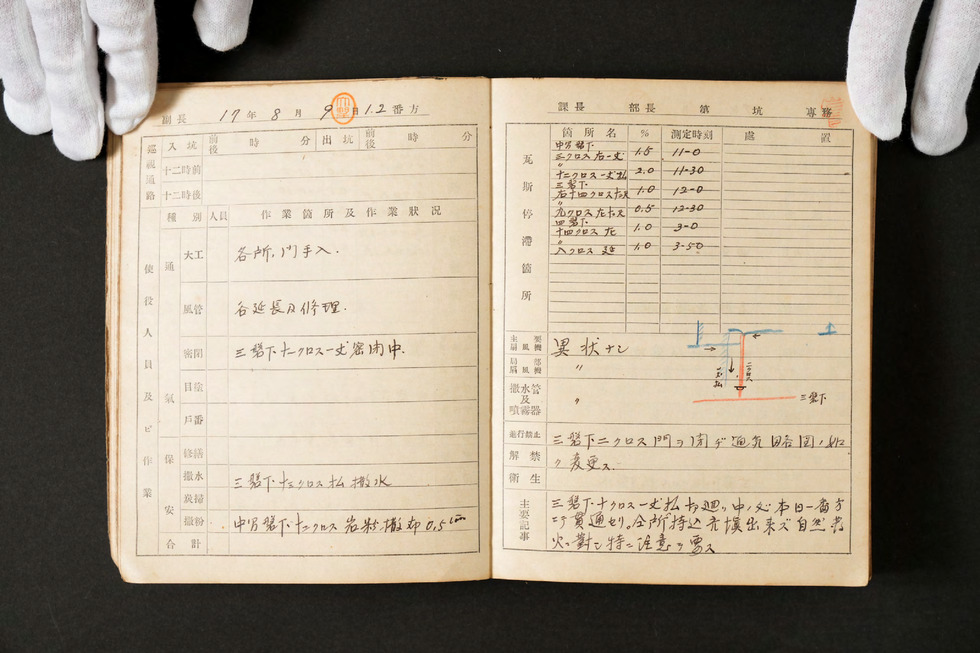 副長 17年8月9日1.2番方
巡視通路 入坑 前後 時 分 出坑 前後 時 分
十二時前
十二時後
使役人員及ビ作業
種別 人員 作業箇所及作業状況
通氣
大工 各所門手入.
風管 各延長及修理.
密閉 三盤下十二クロス一丈密閉中.
目塗
戸番
保安
修繕
撒水 三盤下十二クロス払撒水
炭掃
撒粉 中盤下十二クロス岩粉撒布0.5
合計
課長 部長 第 坑 専務
瓦斯停滞箇所
箇所名 % 測定時刻 處置
三クロス右一丈 1.5 11-0
〃
十二クロス一丈払 2.0 11-30
三盤下
右十四クロス 1.0 12-0
〃
0.5 12-30
四盤下
十四クロス左 1.0 3-0
〃
八クロス延 1.0 3-50
主要扇風機 異状ナシ
局部扇風機 〃
撒水管及噴霧器 〃
一丈払
二クロス
三盤下
進行禁止
解禁
衛生
三盤下二クロス門ヲ閉ヂ通気略図ノ如
ク変更ス.
主要記事
三盤下十クロス一丈払 中ノ処本日一番方
ニテ貫通セリ。全所持込充填出来ズ自然発
火ニ対シ特ニ注意ヲ要ス